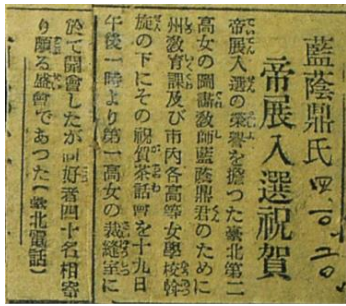 藍蔭鼎氏
帝展入選祝賀
帝展入選の榮譽を擔つた臺北第二
高女の圖畵教師藍蔭鼎君のために
州教育課及び市内各高等女學校幹
旋の下にその祝賀茶話會を十九日
午後一時より第一高女の裁縫室に
於て開會したが同好者四十名相寄
り頗る盛會であつた(臺北電話)